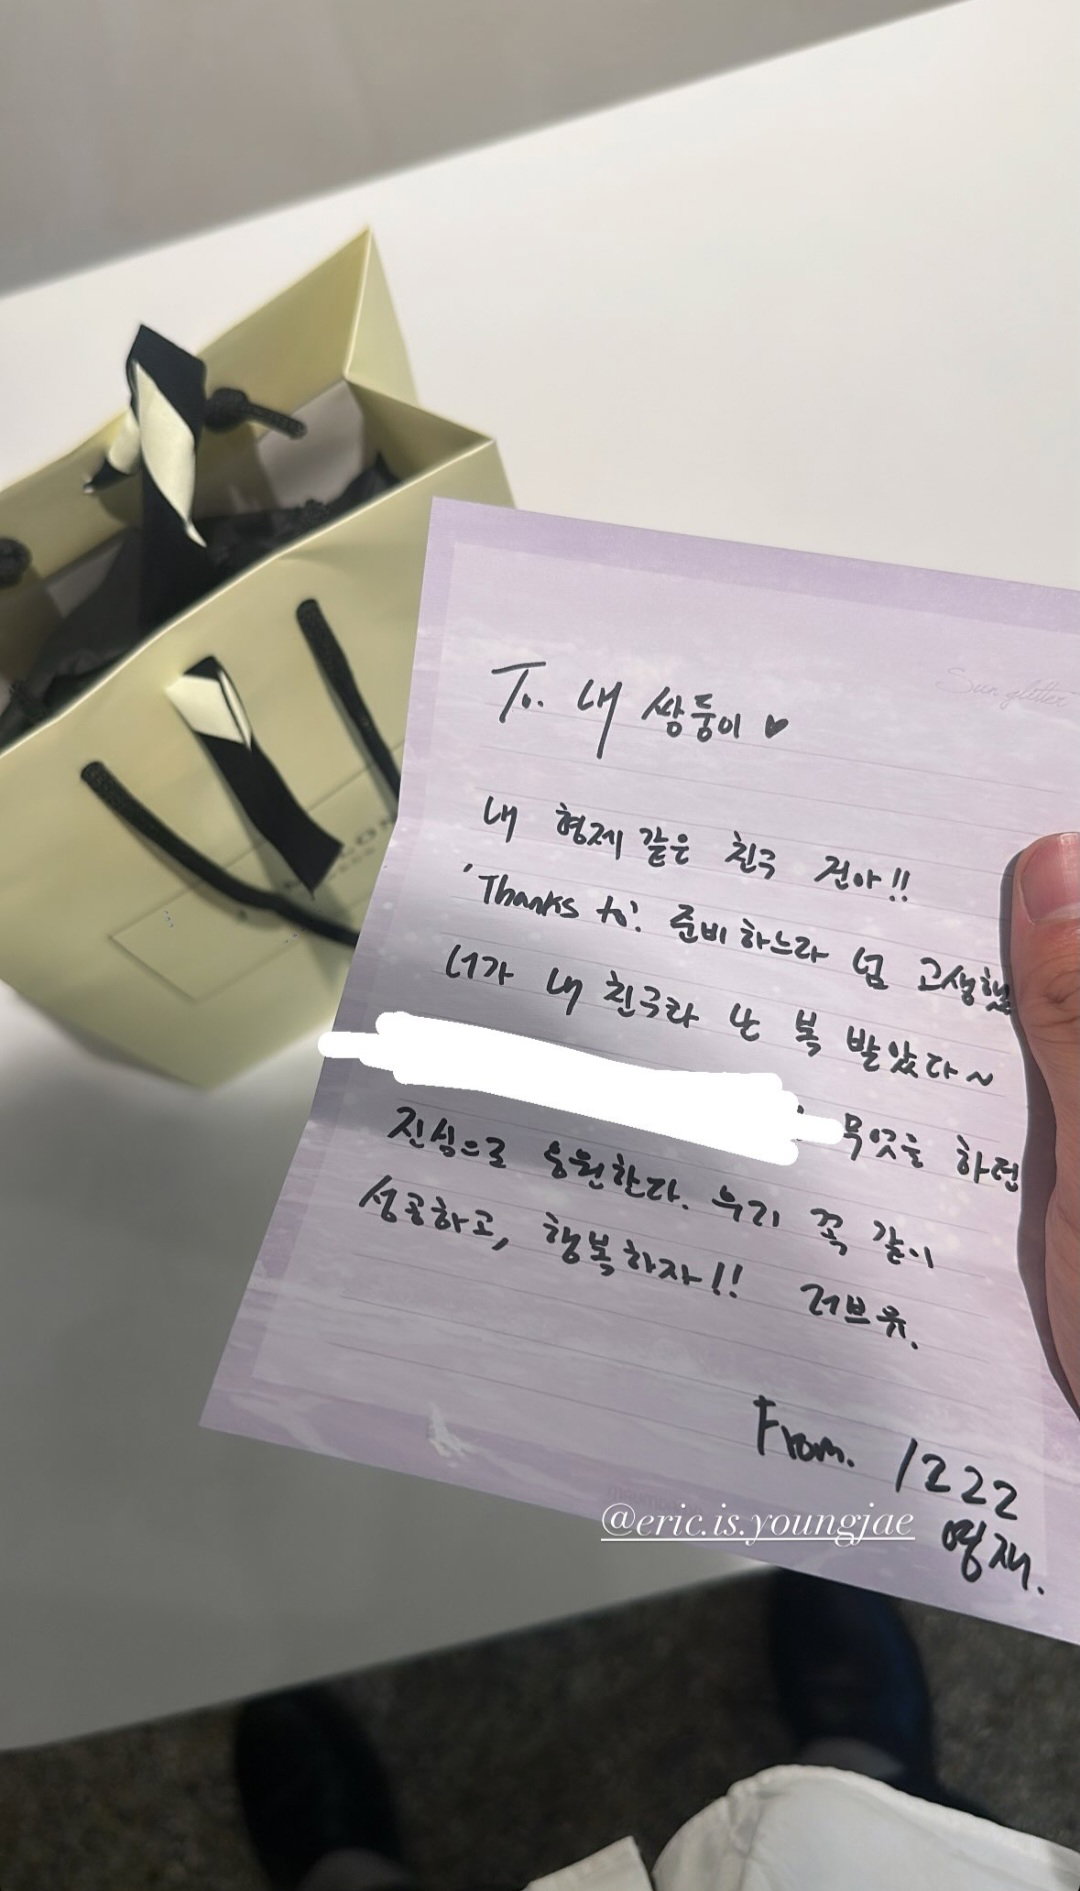 Sun glitter
To. 내 쌍둥이 ♥
내 형제 같은 친구 건아!!
'Thanks to'. 준비하느라 넘 고생했
너가 내 친구라 난 복 받았다~
무엇을 하던
진심으로 응원한다. 우리 꼭 같이
성공하고, 행복하자!! 러브유.
From. 1222
영재.
@eric.is.youngjae